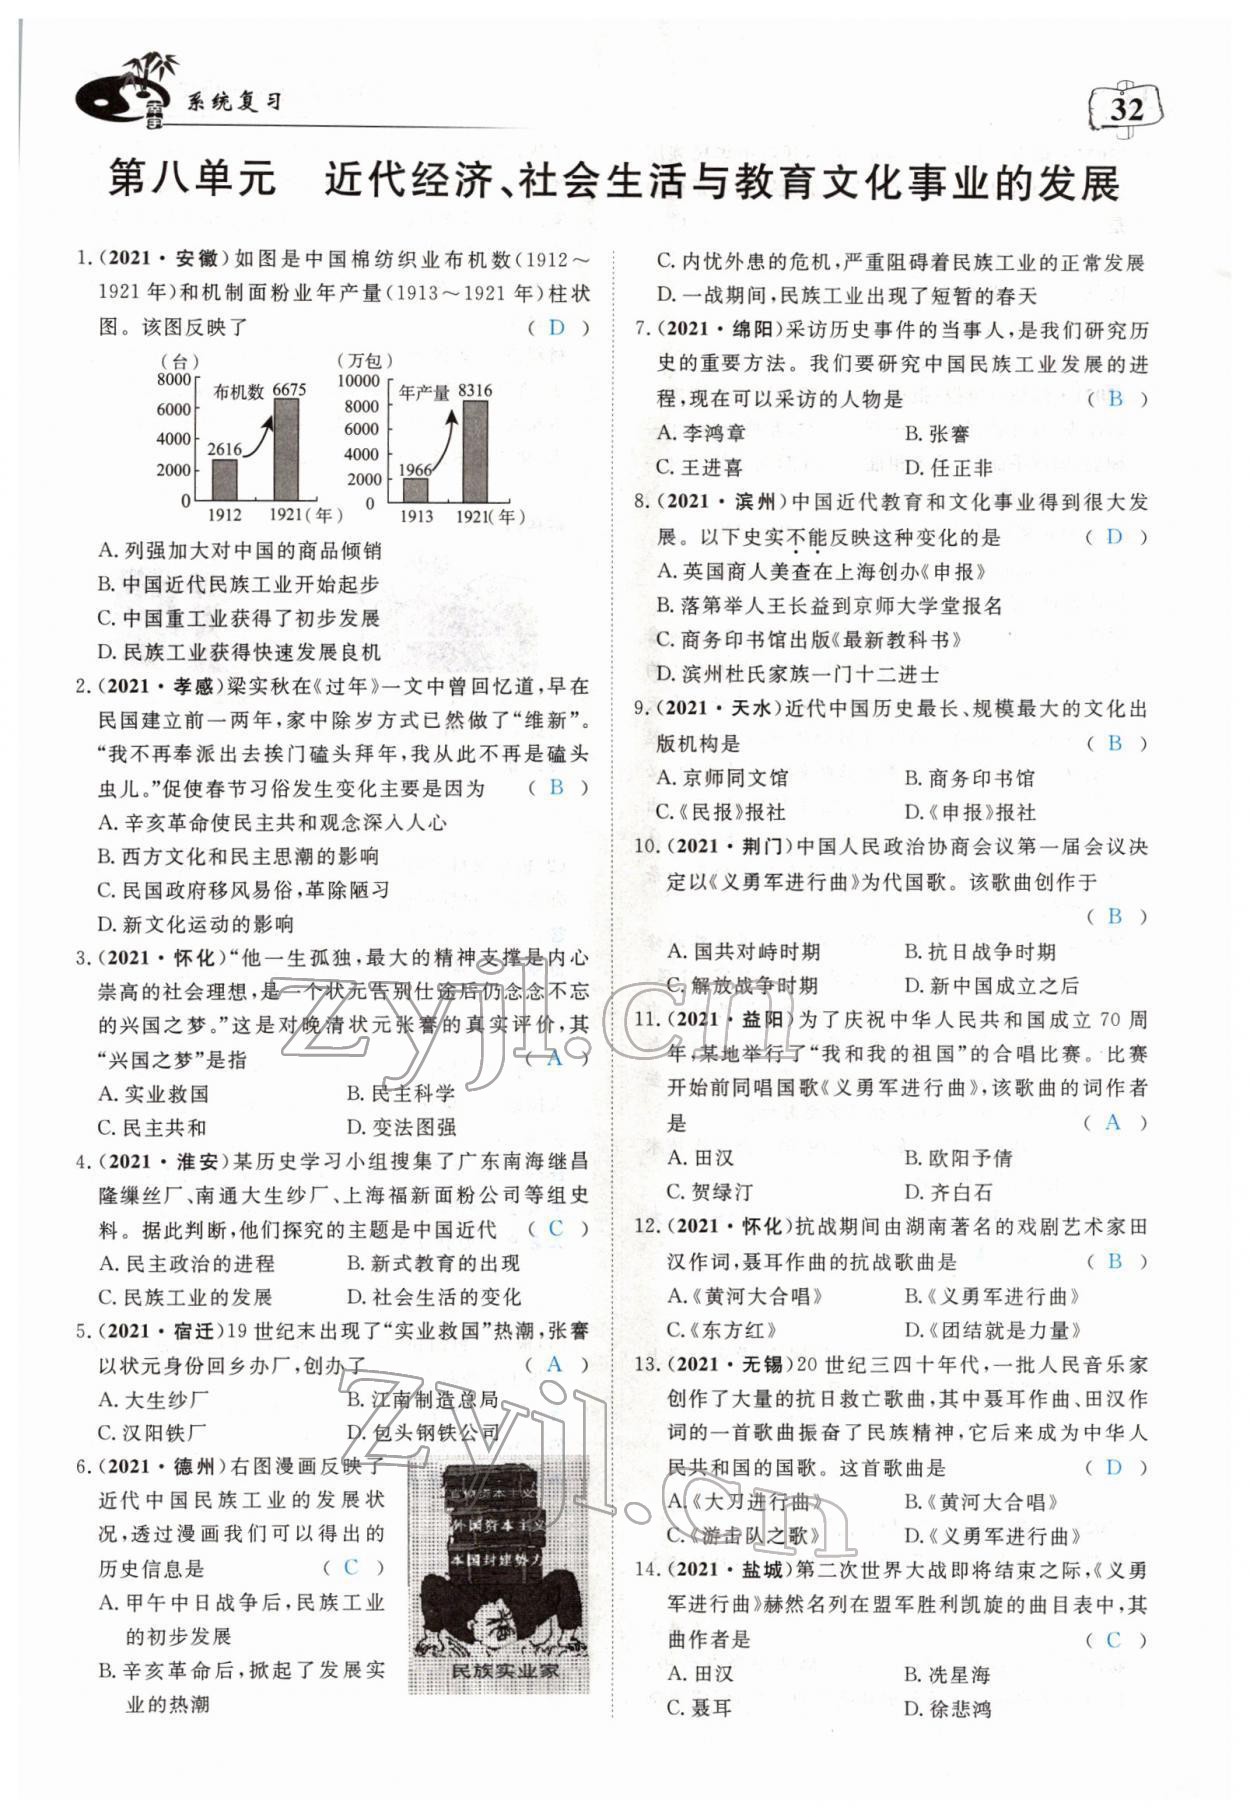 系统复习
32
第八单元　近代经济、社会生活与教育文化事业的发展
1.(2021·安徽)如图是中国棉纺织业布机数(1912～
1921年)和机制面粉业年产量(1913～1921年)柱状
图。该图反映了 ( D )
(台)
8000
6000
4000
2000
0
布机数
2616
6675
1912 1921(年)
(万包)
10000
8000
6000
4000
2000
0
年产量
1966
8316
1913 1921(年)
A.列强加大对中国的商品倾销
B.中国近代民族工业开始起步
C.中国重工业获得了初步发展
D.民族工业获得快速发展良机
2.(2021·孝感)梁实秋在《过年》一文中曾回忆道,早在
民国建立前一两年,家中除岁方式已然做了“维新”。
“我不再奉派出去挨门磕头拜年,我从此不再是磕头
虫儿。”促使春节习俗发生变化主要是因为 ( B )
A.辛亥革命使民主共和观念深入人心
B.西方文化和民主思潮的影响
C.民国政府移风易俗,革除陋习
D.新文化运动的影响
3.(2021·怀化)“他一生孤独,最大的精神支撑是内心
崇高的社会理想,是一个状元告别仕途后仍念念不忘
的兴国之梦。”这是对晚清状元张謇的真实评价,其
“兴国之梦”是指 ( A )
A.实业救国 B.民主科学
C.民主共和 D.变法图强
4.(2021·淮安)某历史学习小组搜集了广东南海继昌
隆缫丝厂、南通大生纱厂、上海福新面粉公司等组史
料。据此判断,他们探究的主题是中国近代 ( C )
A.民主政治的进程 B.新式教育的出现
C.民族工业的发展 D.社会生活的变化
5.(2021·宿迁)19世纪末出现了“实业救国”热潮,张謇
以状元身份回乡办厂,创办了 ( A )
A.大生纱厂 B.江南制造总局
C.汉阳铁厂 D.包头钢铁公司
6.(2021·德州)右图漫画反映了
近代中国民族工业的发展状
况,透过漫画我们可以得出的
历史信息是 ( C )
A.甲午中日战争后,民族工业
的初步发展
B.辛亥革命后,掀起了发展实
业的热潮
官僚资本主义
外国资本主义
本国封建势力
民族实业家
C.内忧外患的危机,严重阻碍着民族工业的正常发展
D.一战期间,民族工业出现了短暂的春天
7.(2021·绵阳)采访历史事件的当事人,是我们研究历
史的重要方法。我们要研究中国民族工业发展的进
程,现在可以采访的人物是 ( B )
A.李鸿章 B.张謇
C.王进喜 D.任正非
8.(2021·滨州)中国近代教育和文化事业得到很大发
展。以下史实不能反映这种变化的是 ( D )
A.英国商人美查在上海创办《申报》
B.落第举人王长益到京师大学堂报名
C.商务印书馆出版《最新教科书》
D.滨州杜氏家族一门十二进士
9.(2021·天水)近代中国历史最长、规模最大的文化出
版机构是 ( B )
A.京师同文馆 B.商务印书馆
C.《民报》报社 D.《申报》报社
10.(2021·荆门)中国人民政治协商会议第一届会议决
定以《义勇军进行曲》为代国歌。该歌曲创作于
( B )
A.国共对峙时期 B.抗日战争时期
C.解放战争时期 D.新中国成立之后
11.(2021·益阳)为了庆祝中华人民共和国成立70周
年,某地举行了“我和我的祖国”的合唱比赛。比赛
开始前同唱国歌《义勇军进行曲》,该歌曲的词作者
是 ( A )
A.田汉 B.欧阳予倩
C.贺绿汀 D.齐白石
12.(2021·怀化)抗战期间由湖南著名的戏剧艺术家田
汉作词,聂耳作曲的抗战歌曲是 ( B )
A.《黄河大合唱》 B.《义勇军进行曲》
C.《东方红》 D.《团结就是力量》
13.(2021·无锡)20世纪三四十年代,一批人民音乐家
创作了大量的抗日救亡歌曲,其中聂耳作曲、田汉作
词的一首歌曲振奋了民族精神,它后来成为中华人
民共和国的国歌。这首歌曲是 ( D )
A.《大刀进行曲》 B.《黄河大合唱》
C.《游击队之歌》 D.《义勇军进行曲》
14.(2021·盐城)第二次世界大战即将结束之际,《义勇
军进行曲》赫然名列在盟军胜利凯旋的曲目表中,其
曲作者是 ( C )
A.田汉 B.冼星海
C.聂耳 D.徐悲鸿
zyjl.cn
zyjl.cn